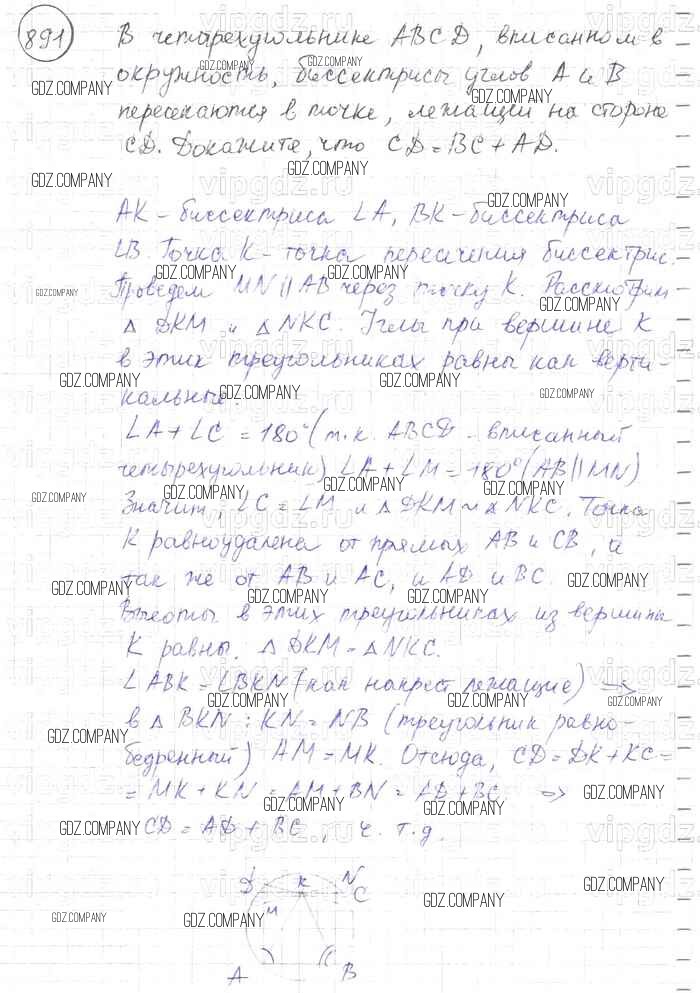 891
В четырехугольнике ABCD, вписанном в
окружность, биссектрисы углов A и B
пересекаются в точке, лежащей на стороне
CD. Докажите, что CD = BC + AD.
AK - биссектриса ∠A, BK - биссектриса
∠B. Точка K - точка пересечения биссектрис.
Проведем MN || AB через точку K. Рассмотрим
△ DKM и △ NKC. Углы при вершине K
в этих треугольниках равны как верти-
кальные.
∠A + ∠C = 180° (т.к. ABCD - вписанный
четырехугольник) ∠A + ∠M = 180° (AB || MN)
Значит, ∠C = ∠M и △ DKM ~ △ NKC. Точка
K равноудалена от прямых AB и CB, и
так же от AB и AC, и AD и BC.
Высоты в этих треугольниках из вершины
K равны. △ DKM = △ NKC.
∠ABK = ∠BKN (как накрест лежащие) =>
в △ BKN: KN = NB (треугольник равно-
бедренный) AM = MK. Отсюда, CD = DK + KC =
= MK + KN = AM + BN = AD + BC =>
CD = AD + BC, ч. т. д.
D K N
C
M
A B
GDZ.COMPANY
vipgdz.ru